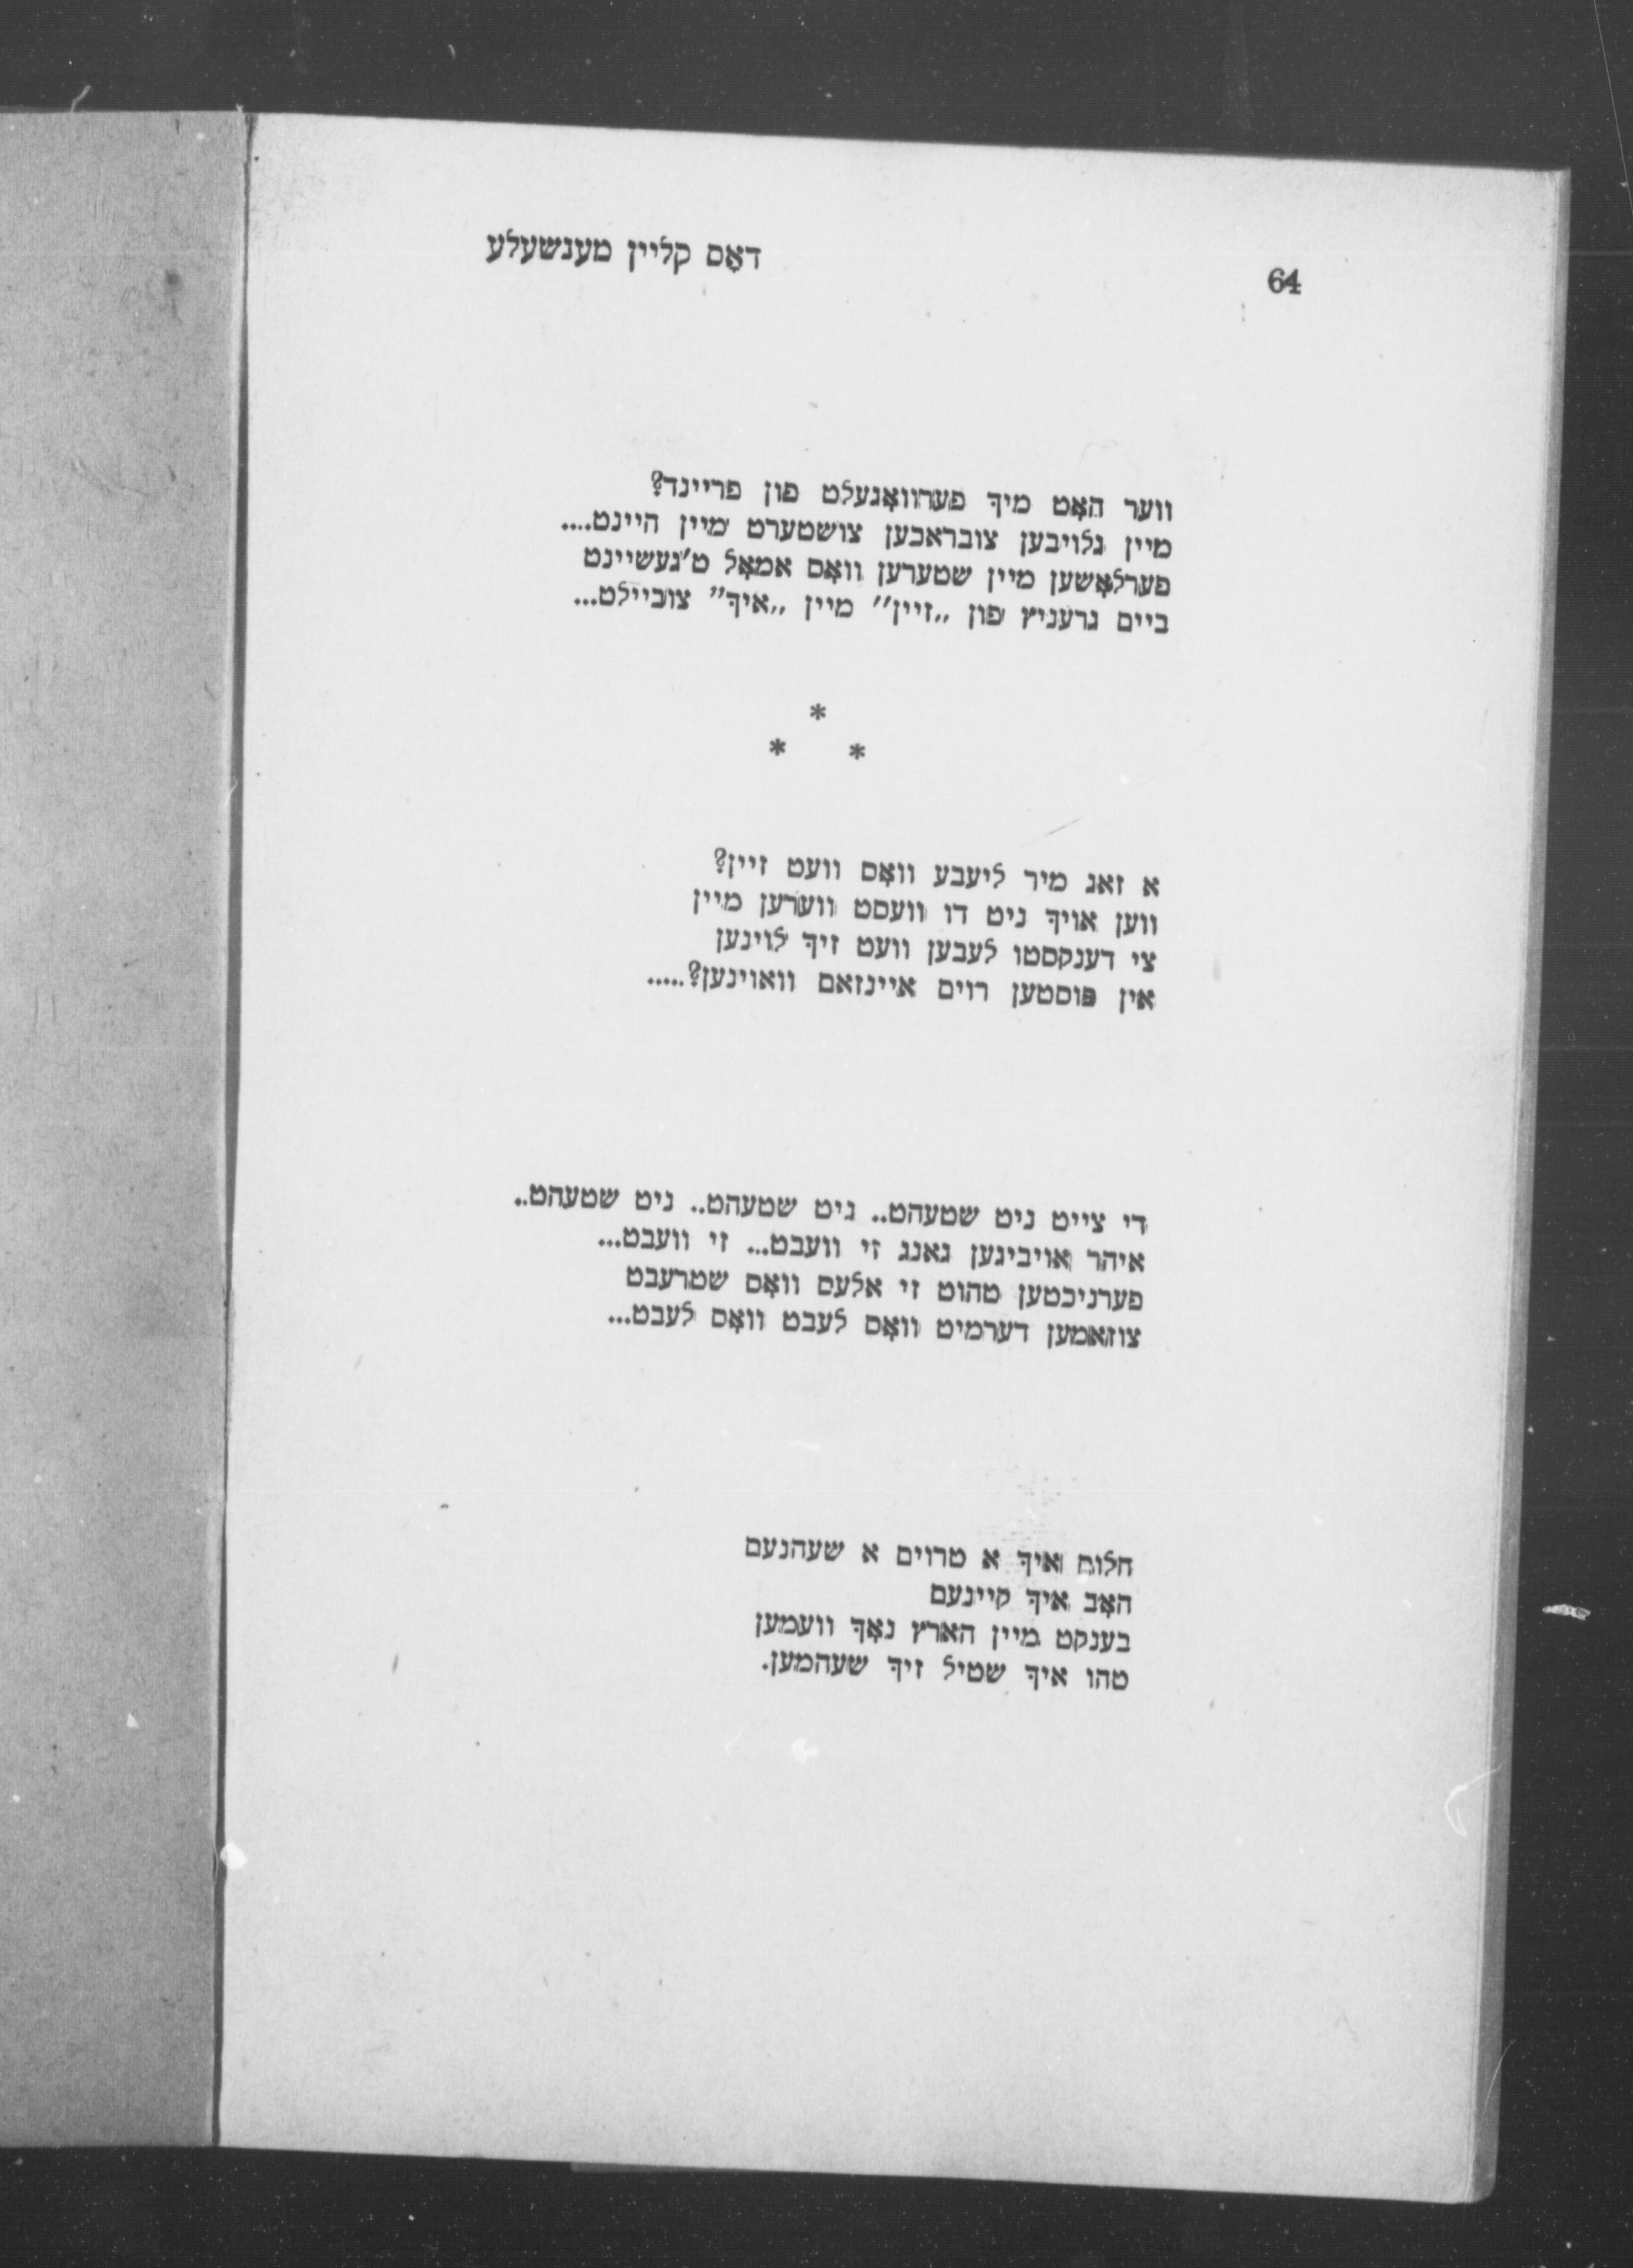 64
דאָס קליין מענשעלע
ווער האָט מיך פערוואָגעלט פון פריינד?
מיין גלויבען צובראכען צושטערט מיין היינט....
פערלאָשען מיין שטערען וואָס אמאָל ט'געשיינט
ביים גרעניץ פון „זיין” מיין „איך” צוביילט...
*
* *
א זאג מיר ליעבע וואָס וועט זיין?
ווען אויך ניט דו וועסט ווערען מיין
צי דענקסטו לעבען וועט זיך לוינען
אין פוסטען רוים איינזאם וואוינען?.....
די צייט ניט שטעהט.. ניט שטעהט.. ניט שטעהט..
איהר אויביגען גאנג זי וועבט... זי וועבט...
פערניכטען טהוט זי אלעס וואָס שטרעבט
צוזאמען דערמיט וואָס לעבט וואָס לעבט...
חלום איך א טרוים א שעהנעם
האָב איך קיינעם
בענקט מיין הארץ נאָך וועמען
טהו איך שטיל זיך שעהמען.